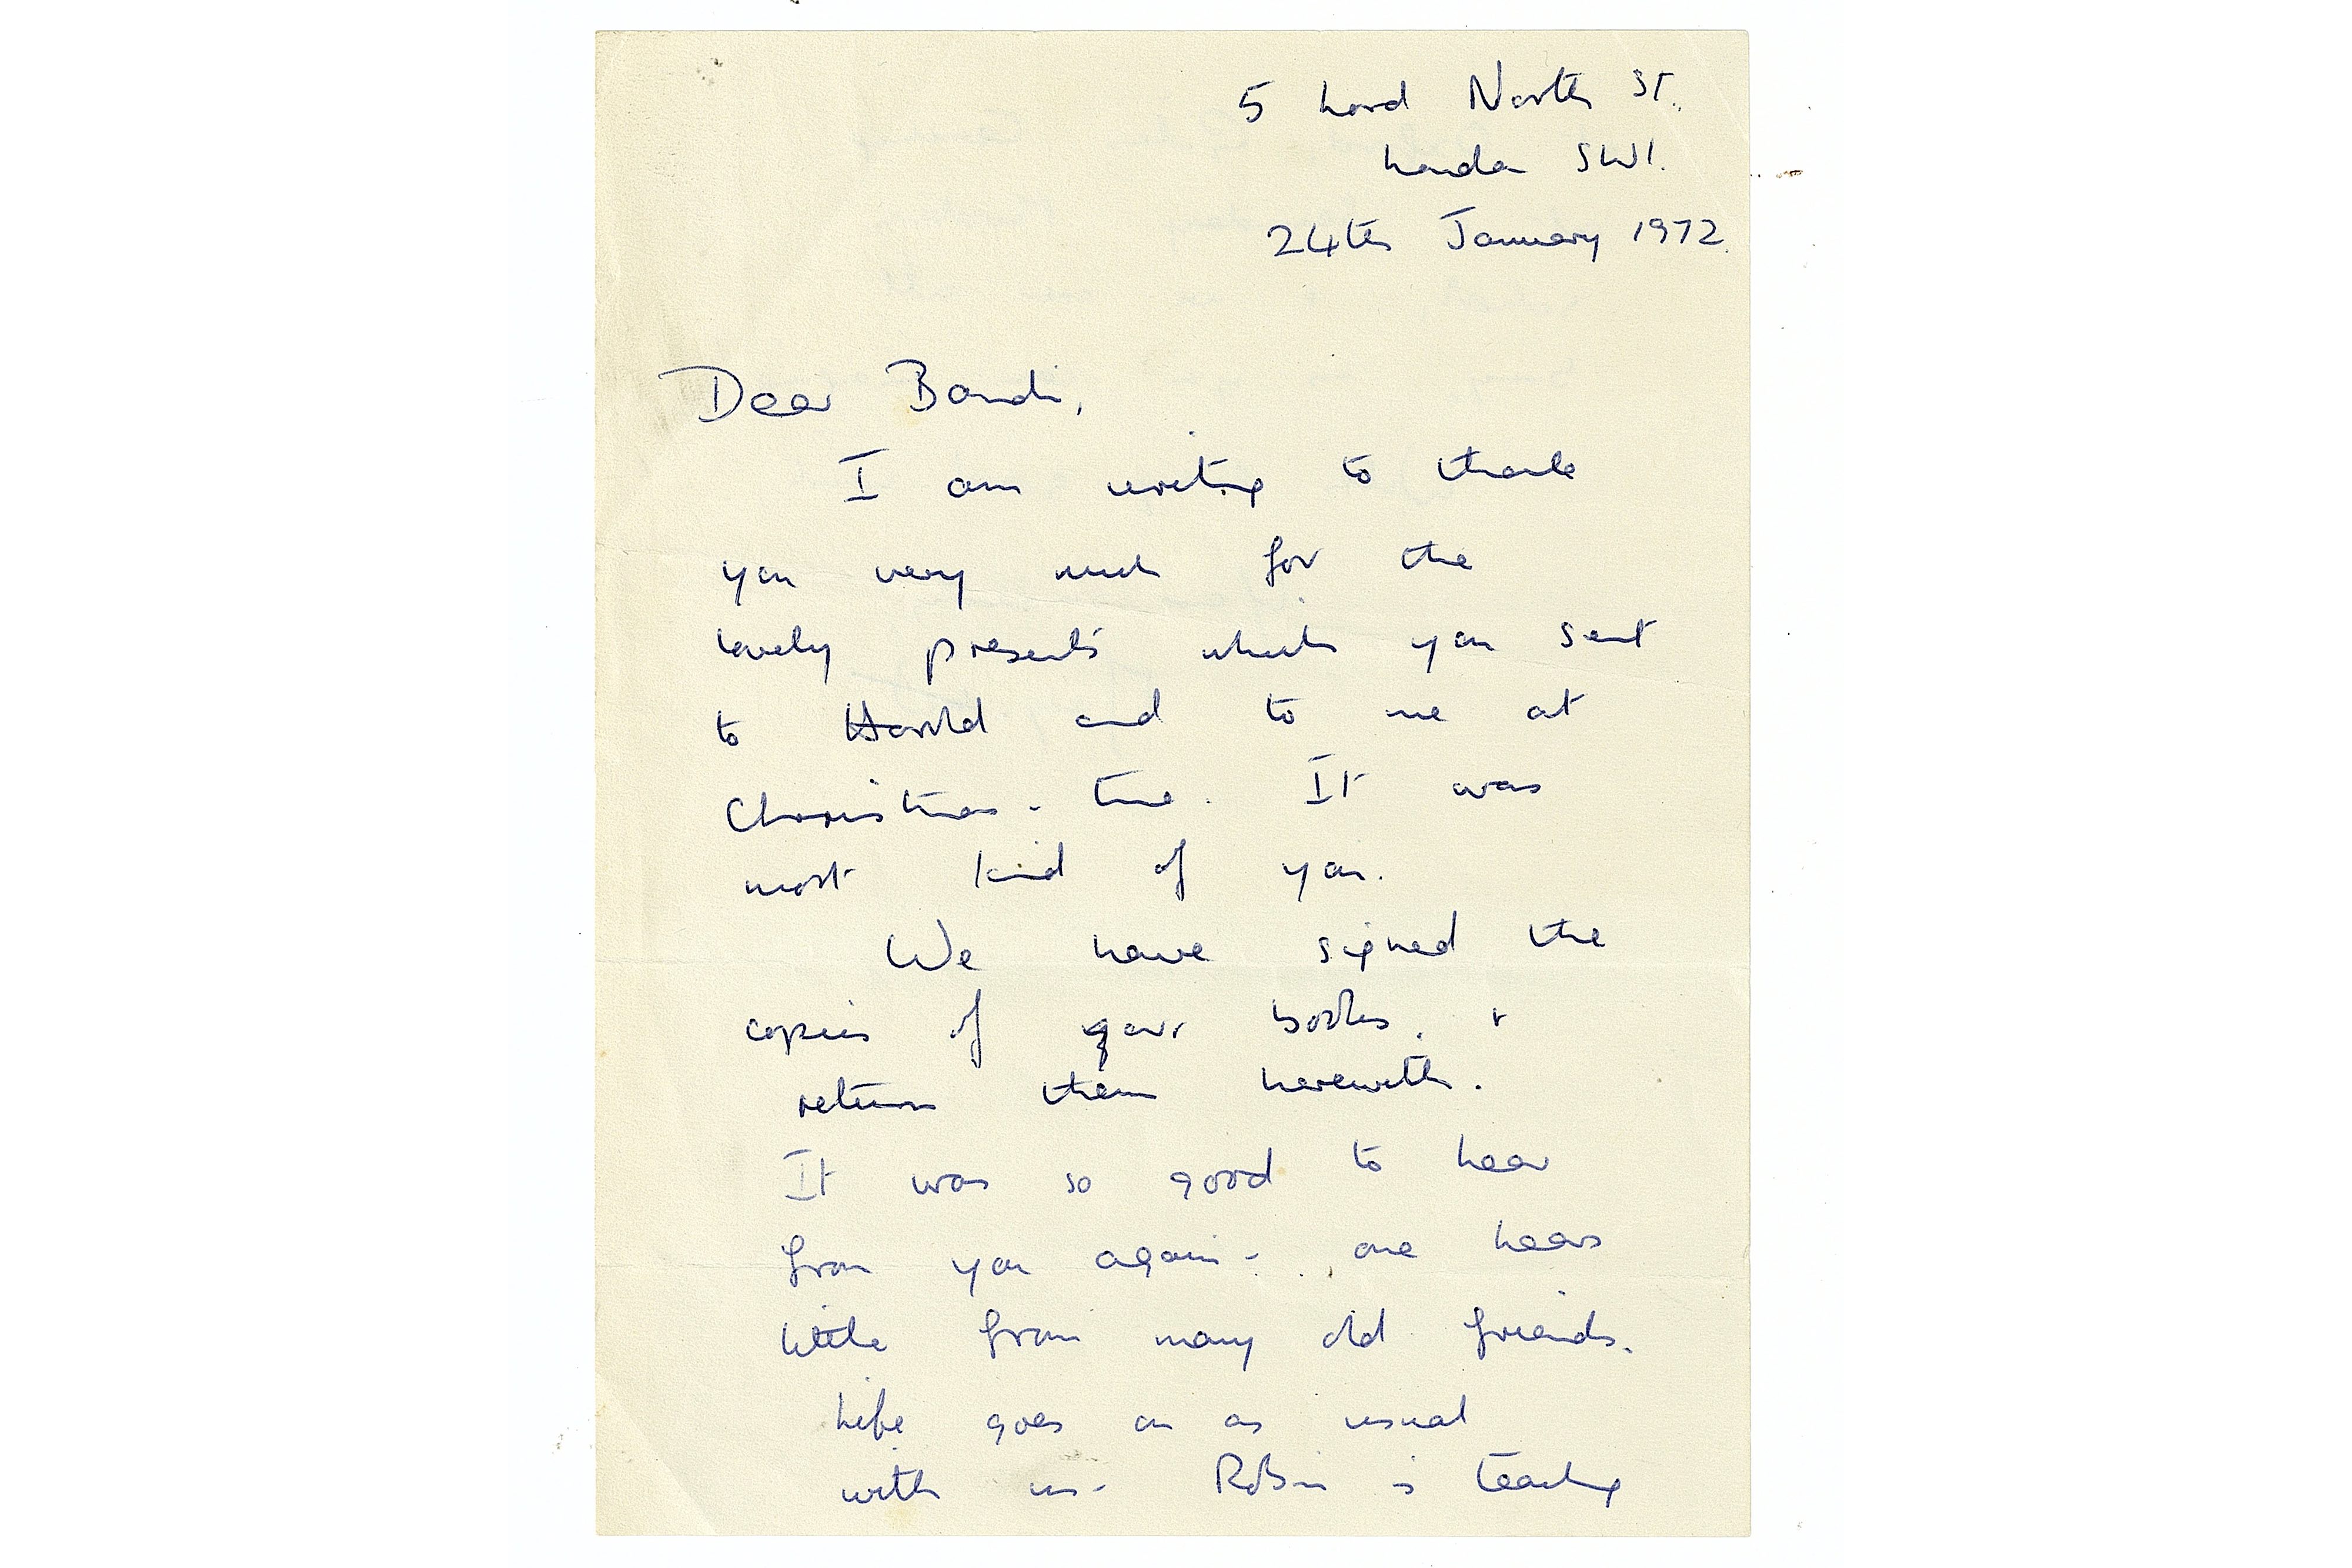 5 Lord North St.
London SW1.
24th January 1972.
Dear Bandi,
I am writing to thank
you very much for the
lovely presents which you sent
to Harold and to me at
Christmas-time. It was
most kind of you.
We have signed the
copies of your books, +
return them herewith.
It was so good to hear
from you again - one hears
little from many old friends.
Life goes on as usual
with us - Robin is teaching